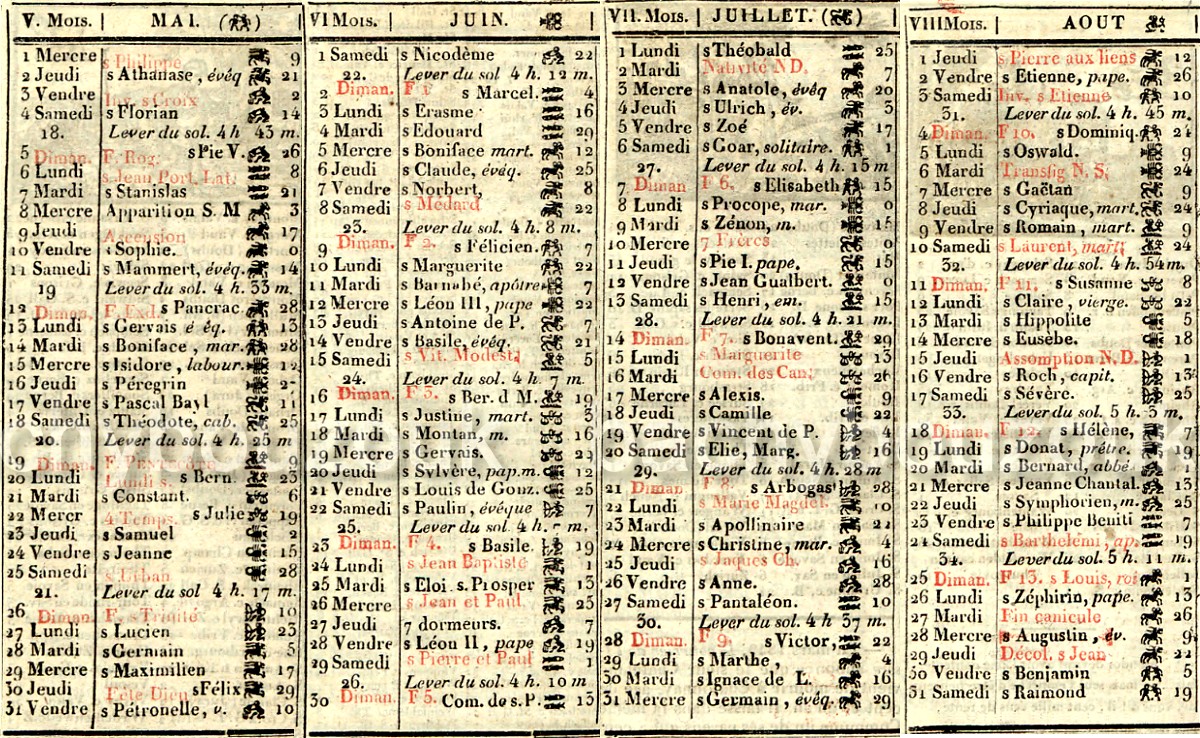 V. Mois. MAI.
1 Mercre s Philippe 9
2 Jeudi s Athanase, évéq 21
3 Vendre Inv. s Croix 2
4 Samedi s Florian 14
18. Lever du sol. 4 h 43 m.
5 Diman. F. Rog. s Pie V. 26
6 Lundi s Jean Port. Lat. 8
7 Mardi s Stanislas 21
8 Mercre Apparition S. M 3
9 Jeudi Ascension 17
10 Vendre s Sophie. 0
11 Samedi s Mammert, évéq. 14
19 Lever du sol. 4 h. 33 m.
12 Diman. F. Exd. s Pancrac. 28
13 Lundi s Gervais é éq. 13
14 Mardi s Boniface, mar. 28
15 Mercre s Isidore, labour. 12
16 Jeudi s Pérégrin
17 Vendre s Pascal Bayl 11
18 Samedi s Théodote, cab. 25
20. Lever du sol. 4 h. 25 m
19 Diman. F. PENTECOTE 9
20 Lundi Lundi s. s Bern. 23
21 Mardi s Constant. 6
22 Mercr 4 Temps. s Julie 19
23 Jeudi s Samuel 2
24 Vendre s Jeanne 15
25 Samedi s Urban 28
21. Lever du sol 4 h. 17 m.
26 Diman. F. s Trinité 10
27 Lundi s Lucien 23
28 Mardi s Germain 5
29 Mercre s Maximilien 17
30 Jeudi Fête Dieu s Félix 29
31 Vendre s Pétronelle, v. 10
VI Mois. JUIN.
1 Samedi s Nicodème 22
22. Lever du sol 4 h. 12 m.
2 Diman. F 1 s Marcel. 4
3 Lundi s Erasme 16
4 Mardi s Edouard 29
5 Mercre s Boniface mart. 12
6 Jeudi s Claude, évéq. 25
7 Vendre s Norbert, 8
8 Samedi s Médard 22
23. Lever du sol. 4 h. 8 m.
9 Diman. F 2. s Félicien. 7
10 Lundi s Marguerite 22
11 Mardi s Barnabé, apôtre 7
12 Mercre s Léon III, pape 22
13 Jeudi s Antoine de P. 7
14 Vendre s Basile, évéq. 21
15 Samedi s Vit. Modest. 5
24. Lever du sol. 4 h. 7 m.
16 Diman. F 3. s Ber. d M. 19
17 Lundi s Justine, mart. 3
18 Mardi s Montan, m. 16
19 Mercre s Gervais. 29
20 Jeudi s Sylvère, pap.m. 12
21 Vendre s Louis de Gonz. 25
22 Samedi s Paulin, évéque 7
25. Lever du sol. 4 h. m.
23 Diman. F 4. s Basile. 19
24 Lundi s Jean Baptiste 1
25 Mardi s Eloi. s. Prosper 13
26 Mercre s Jean et Paul 25
27 Jeudi 7 dormeurs. 7
28 Vendre s Léon II, pape 19
29 Samedi s Pierre et Paul 1
26. Lever du sol. 4 h. 10 m
30 Diman. F 5. Com. de s. P. 13
VII. Mois. JUILLET.
1 Lundi s Théobald 25
2 Mardi Nativité N D. 7
3 Mercre s Anatole, évéq 20
4 Jeudi s Ulrich, év. 3
5 Vendre s Zoé 17
6 Samedi s Goar, solitaire. 1
27. Lever du sol. 4 h. 15 m
7 Diman F 6. s Elisabeth 15
8 Lundi s Procope, mar. 0
9 Mardi s Zénon, m. 15
10 Mercre 7 Frères 0
11 Jeudi s Pie I. pape. 15
12 Vendre s Jean Gualbert. 0
13 Samedi s Henri, em. 15
28. Lever du sol. 4 h. 21 m.
14 Diman. F 7. s Bonavent. 29
15 Lundi s Marguerite 13
16 Mardi Com. des Can. 26
17 Mercre s Alexis. 9
18 Jeudi s Camille 22
19 Vendre s Vincent de P. 4
20 Samedi s Elie, Marg. 16
29. Lever du sol. 4 h. 28 m
21 Diman F 8. s Arbogast 28
22 Lundi s Marie Magdel. 10
23 Mardi s Apollinaire 22
24 Mercre s Christine, mar. 4
25 Jeudi s Jaques Ch. 16
26 Vendre s Anne. 28
27 Samedi s Pantaléon. 10
30. Lever du sol. 4 h 37 m.
28 Diman. F 9. s Victor, 22
29 Lundi s Marthe, 4
30 Mardi s Ignace de L. 16
31 Mercre s Germain, évéq. 29
VIII Mois. AOUT
1 Jeudi s Pierre aux liens 12
2 Vendre s Etienne, pape. 26
3 Samedi Inv. s Etienne 10
31. Lever du sol. 4 h. 45 m.
4 Diman. F 10. s Dominiq. 24
5 Lundi s Oswald. 9
6 Mardi Transfig N. S. 24
7 Mercre s Gaëtan 9
8 Jeudi s Cyriaque, mart. 24
9 Vendre s Romain, mart. 9
10 Samedi s Laurent, mart. 24
32. Lever du sol. 4 h. 54 m.
11 Diman. F 11. s Susanne 8
12 Lundi s Claire, vierge. 22
13 Mardi s Hippolite 5
14 Mercre s Eusèbe. 18
15 Jeudi Assomption N. D. 1
16 Vendre s Roch, capit. 13
17 Samedi s Sévère. 25
33. Lever du sol. 5 h 3 m.
18 Diman. F 12. s Hélène, 7
19 Lundi s Donat, prêtre. 19
20 Mardi s Bernard, abbé 1
21 Mercre s Jeanne Chantal. 13
22 Jeudi s Symphorien, m. 25
23 Vendre s Philippe Beniti 7
24 Samedi s Barthélemi, ap. 19
34. Lever du sol. 5 h. 11 m.
25 Diman. F 13. s Louis, roi 1
26 Lundi s Zéphirin, pape. 13
27 Mardi Fin canicule 26
28 Mercre s Augustin, év. 9
29 Jeudi Décol. s Jean 22
30 Vendre s Benjamin 5
31 Samedi s Raimond 19